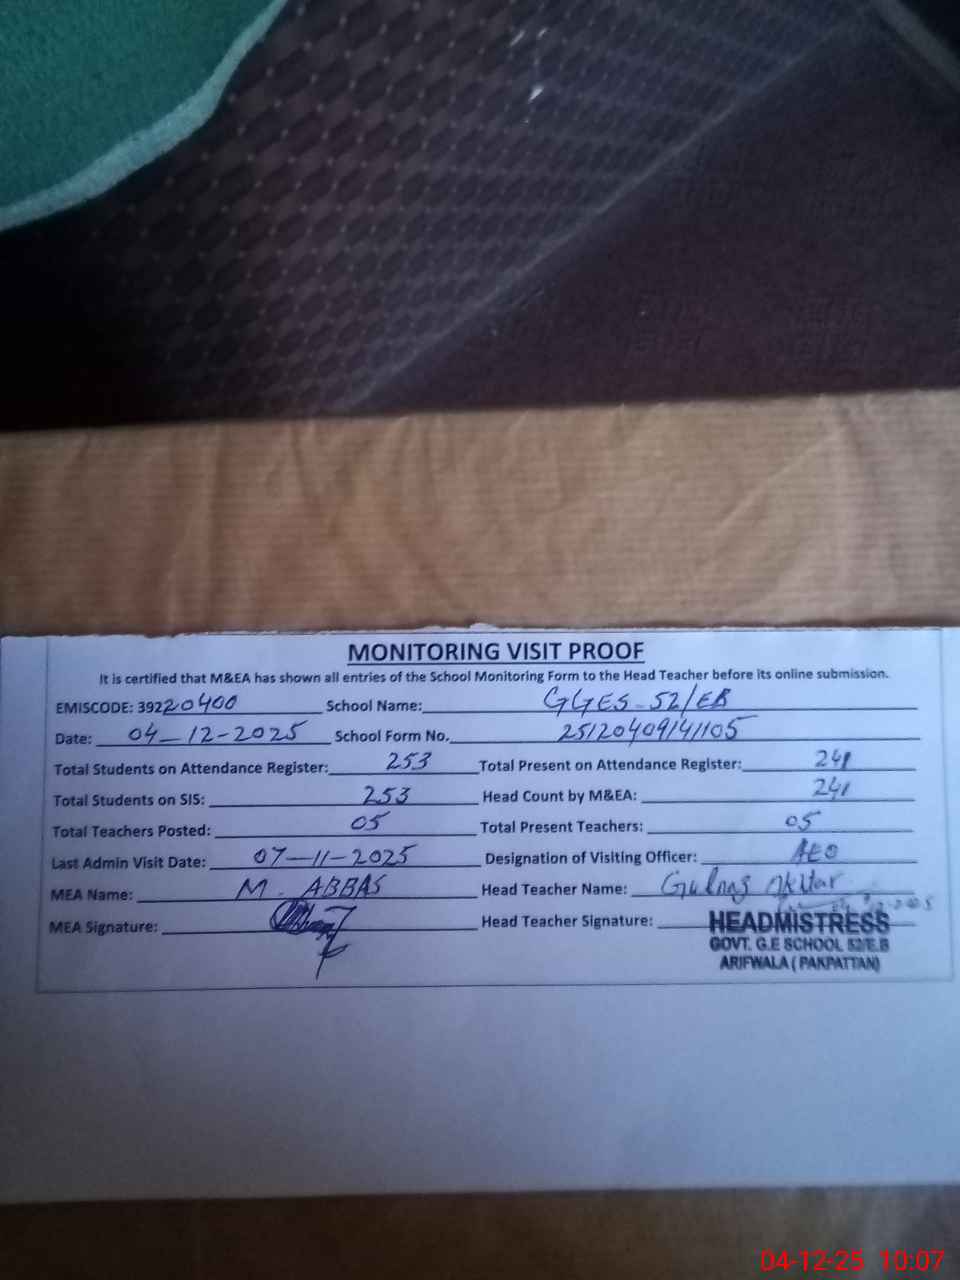 MONITORING VISIT PROOF
It is certified that M&EA has shown all entries of the School Monitoring Form to the Head Teacher before its online submission.
EMISCODE: 39220400 School Name: GGES-52/EB
Date: 04-12-2025 School Form No. 25120409141105
Total Students on Attendance Register: 253 Total Present on Attendance Register: 241
Total Students on SIS: 253 Head Count by M&EA: 241
Total Teachers Posted: 05 Total Present Teachers: 05
Last Admin Visit Date: 07-11-2025 Designation of Visiting Officer: AEO
MEA Name: M. ABBAS Head Teacher Name: Gulnaz Akhtar
MEA Signature: Head Teacher Signature:
HEADMISTRESS
GOVT. G.E SCHOOL 52/E.B
ARIFWALA ( PAKPATTAN)
04-12-25 10:07